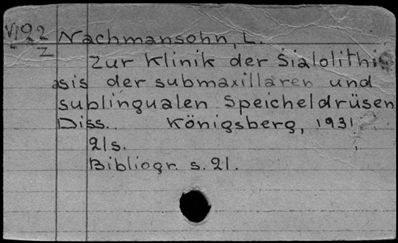 VI92 Nachmansohn, L.
Z
Zur Klinik der Sialolithi
asis der submaxillaren und
sublingualen Speicheldrüsen
Diss. Königsberg, 1931
21s.
Bibliogr. s. 21.